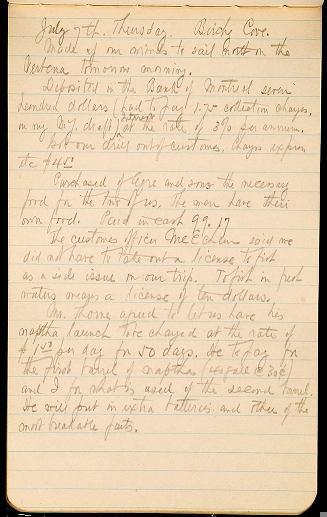 July 7th. Thursday. Birchy Cove.
Made up our minds to sail North on the
Vertena tomorrow morning.
Deposited in the Bank of Montreal seven
hundred dollars (had to pay 1.75 collection charges,
on my N.Y. draft) interest at the rate of 3% per annum.
Got our out of customs. charges
etc $4.50
Purchased of and sons the necessary
food for the two of us. The men have their
own food. Paid in cash 99.17
The customs officer said we
did not have to take out a license to fish
as a side issue on our trip. To fish in fresh
waters means a license of ten dollars.
Mr. Thorne agreed to let us have his
naptha launch to be charged at the rate of
$1.50 per day for 50 days. He to pay for
the first barrel of naptha (40 gals @ 30¢)
and I for what is used of the second barrel.
He will put in extra batteries and other of the
most breakable parts.